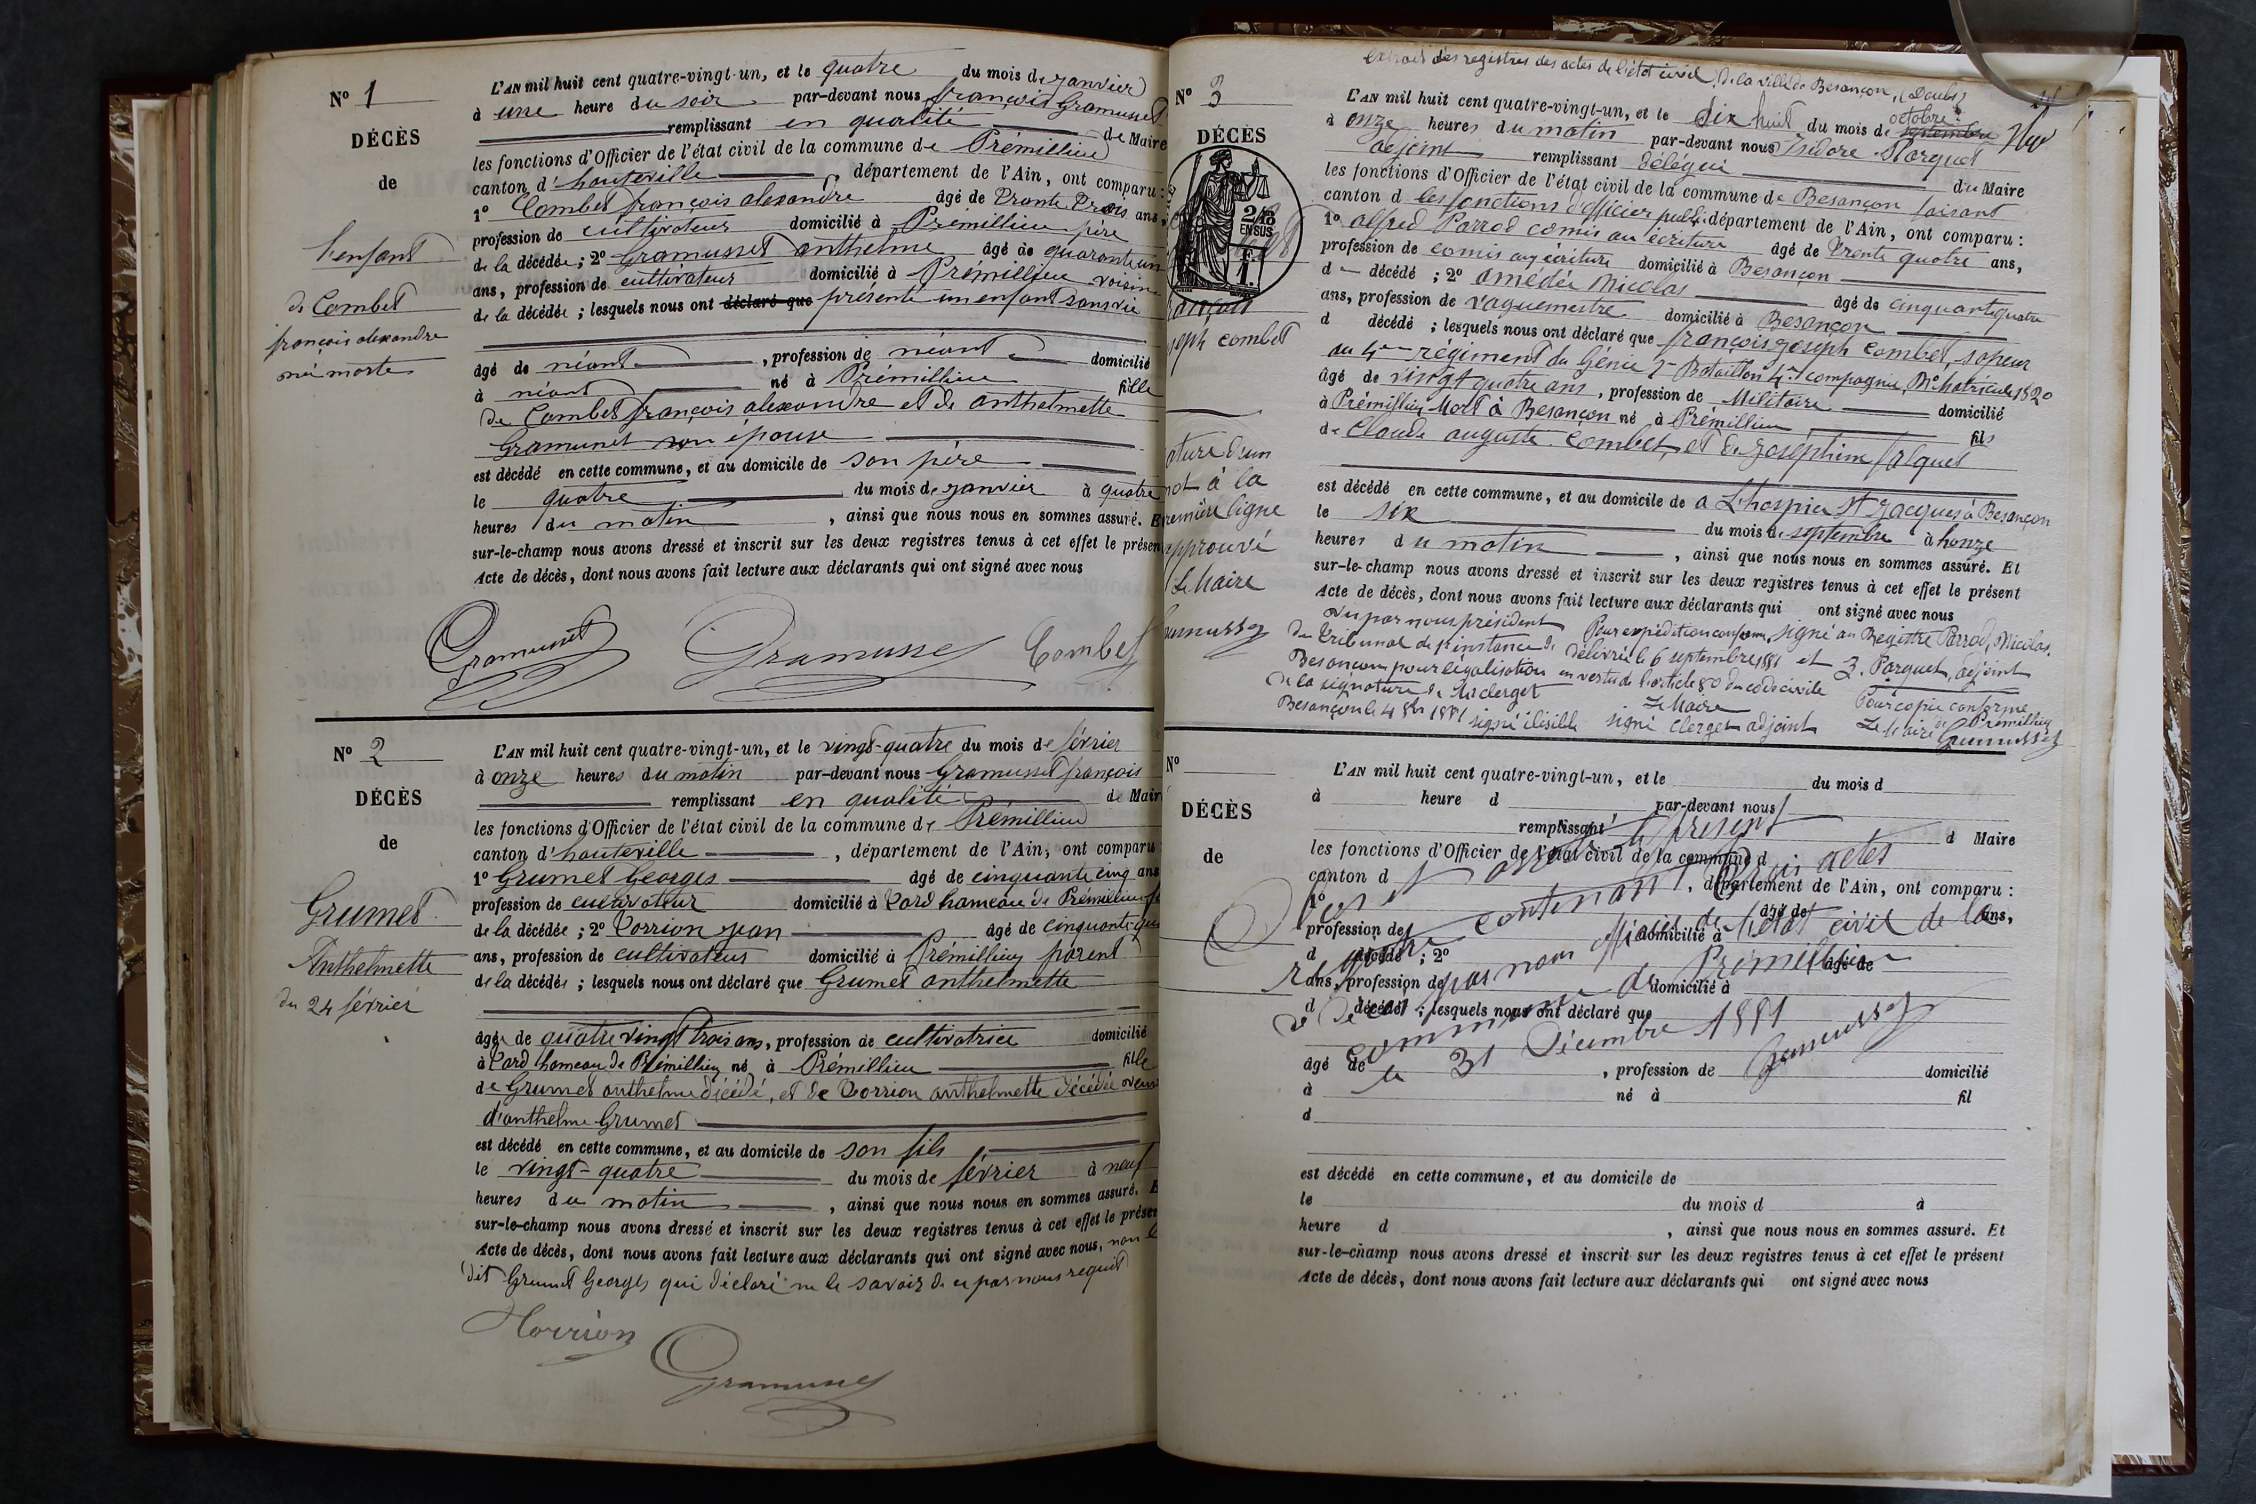 N° 1
DÉCÈS
de
l'enfant
de Combet
françois alexandre
né morte
L'AN mil huit cent quatre-vingt-un, et le quatre du mois de janvier
à une heure du soir par-devant nous françois Gramusset
remplissant en qualité de Maire
les fonctions d'Officier de l'état civil de la commune de Prémillieu
canton d'hauteville, département de l'Ain, ont comparu :
1° Combet françois alexandre âgé de trente trois ans,
profession de cultivateur domicilié à Prémillieu père
de la décédée ; 2° Gramusset anthelme âgé de quarante un
ans, profession de cultivateur domicilié à Prémillieu voisin
de la décédée ; lesquels nous ont déclaré que présenté un enfant sans vie
âgé de néant, profession de néant domicilié
à néant né à Prémillieu fille
de Combet françois alexandre et de anthelmette
Gramusset son épouse
est décédé en cette commune, et au domicile de son père
le quatre du mois de janvier à quatre
heures du matin, ainsi que nous nous en sommes assuré. E
sur-le-champ nous avons dressé et inscrit sur les deux registres tenus à cet effet le présen
Acte de décès, dont nous avons fait lecture aux déclarants qui ont signé avec nous
Gramusset Gramusset Combet
N° 2
DÉCÈS
de
Grumet
Anthelmette
du 24 février
L'AN mil huit cent quatre-vingt-un, et le vingt-quatre du mois de février
à onze heures du matin par-devant nous Gramusset françois
remplissant en qualité de Mair
les fonctions d'Officier de l'état civil de la commune de Prémillieu
canton d'hauteville, département de l'Ain, ont comparu
1° Grumet Georges âgé de cinquante cinq ans
profession de cultivateur domicilié à Tard hameau de Prémillieu
de la décédée ; 2° Torrion jean âgé de cinquante
ans, profession de cultivateur domicilié à Prémillieu parent
de la décédée ; lesquels nous ont déclaré que Grumet anthelmette
âgée de quatre vingt trois ans, profession de cultivatrice domicilié
à Tard hameau de Prémillieu né à Prémillieu fille
de Grumet anthelme décédé, et de Torrion anthelmette décédée veuve
d'anthelme Grumet
est décédé en cette commune, et au domicile de son fils
le vingt-quatre du mois de février à neuf
heures du matin, ainsi que nous nous en sommes assuré. E
sur-le-champ nous avons dressé et inscrit sur les deux registres tenus à cet effet le présen
Acte de décès, dont nous avons fait lecture aux déclarants qui ont signé avec nous, non le
dit Grumet Georges qui déclaré ne le savoir de ce par nous requit
Torrion
Gramusset
extrait des registres des actes de l'état civil de la ville de Besançon, (Doubs)
N° 3
DÉCÈS
2/10
EN SUS
1 F.
joseph combet
ature d'un
mot à la
première ligne
approuvé
Le Maire
Gramusset
L'AN mil huit cent quatre-vingt-un, et le dix huit du mois de septembre octobre
à onze heures du matin par-devant nous Isidore Parguet
adjoint remplissant délégué du Maire
les fonctions d'Officier de l'état civil de la commune de Besançon faisant
canton d les fonctions d'officier public département de l'Ain, ont comparu :
1° alfred Parrod comis au écriture âgé de trente quatre ans,
profession de comis aux écriture domicilié à Besançon
d décédé ; 2° amédée Nicolas âgé de cinquante quatre
ans, profession de vaguemestre domicilié à Besançon
d décédé ; lesquels nous ont déclaré que françois joseph combet, sapeur
au 4me régiment du Génie Bataillon 4e compagnie, N° Matricule 1820
âgé de vingt quatre ans, profession de Militaire domicilié
à Prémillieu Mort à Besançon né à Prémillieu fils
de Claude auguste Combet, et de joséphine falquet
est décédé en cette commune, et au domicile de a L'hospice St jacques à Besançon
le six du mois de septembre à honze
heures du matin, ainsi que nous nous en sommes assuré. Et
sur-le-champ nous avons dressé et inscrit sur les deux registres tenus à cet effet le présent
Acte de décès, dont nous avons fait lecture aux déclarants qui ont signé avec nous
Vu par nous président Pour expédition conforme, signé au Registre Parrod, Nicolas,
du tribunal de 1e instance de délivrée le 6 septembre 1881 et I. Parguet, adjoint
Besançon pour légalisation en vertu de l'article 80 du code civile
de la signature de Mr clerget Le Maire Pour copie conforme
Besançon le 4 8bre 1881 signé ilisible signé Clerget adjoint Le Maire de Prémillieu
Gramusset
N°
DÉCÈS
de
L'AN mil huit cent quatre-vingt-un, et le du mois d
à heure d par-devant nous
remplissant d Maire
les fonctions d'Officier de l'état civil de la commune d
canton d, département de l'Ain, ont comparu :
1° âgé de ans,
profession de domicilié à
d décédé ; 2° âgé de
ans, profession de domicilié à
d décédé ; lesquels nous ont déclaré que
Clos et arrêté le présent
registre contenant trois actes
de décès par nous officier de l'état civil de la
commune de Prémillieu
le 31 Décembre 1881
Gramusset
âgé de, profession de domicilié
à né à fil
d
est décédé en cette commune, et au domicile de
le du mois d à
heure d, ainsi que nous nous en sommes assuré. Et
sur-le-champ nous avons dressé et inscrit sur les deux registres tenus à cet effet le présent
Acte de décès, dont nous avons fait lecture aux déclarants qui ont signé avec nous